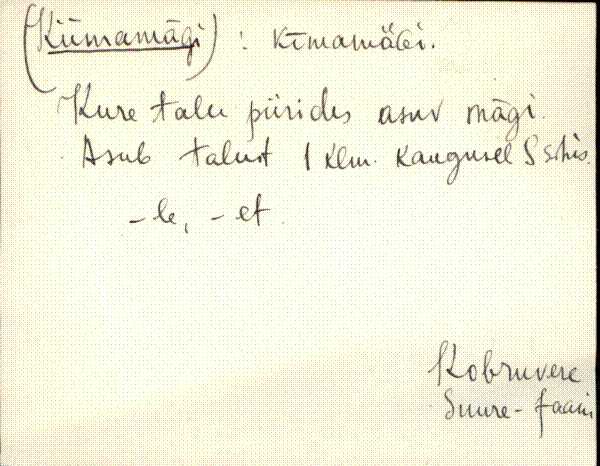 (Kiimamägi) : kīmamäGi.
Kure talu piirides asuv mägi.
Asub talust 1 klm. kaugusel S sihis.
-le, -et.
Kobruvere
Suure-Jaani